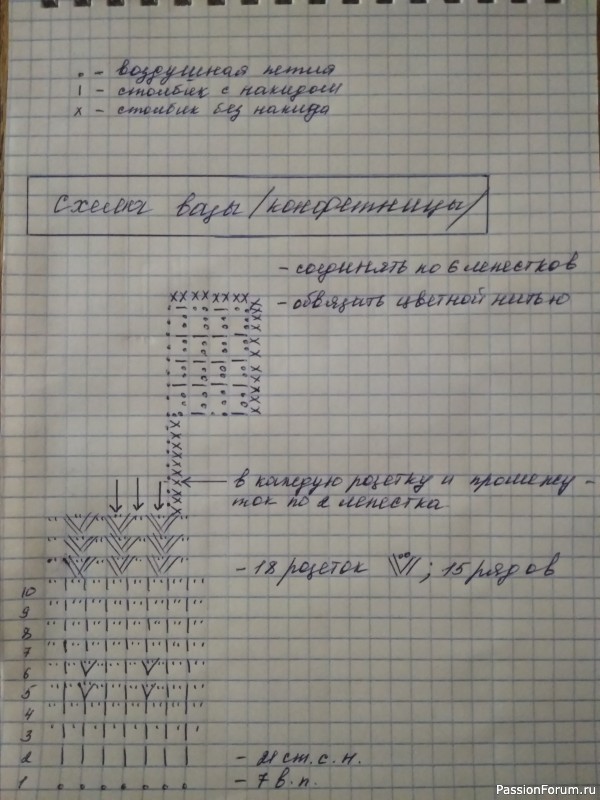 • - воздушная петля
| - столбик с накидом
x - столбик без накида
Схема вазы /конфетницы/
- соединять по 6 лепестков
- обвязать цветной нитью
в каждую розетку и промежу-
ток по 2 лепестка
- 18 розеток ; 15 рядов
10
9
8
7
6
5
4
3
2 - 21 ст. с. н.
1 - 7 в. п.
PassionForum.ru